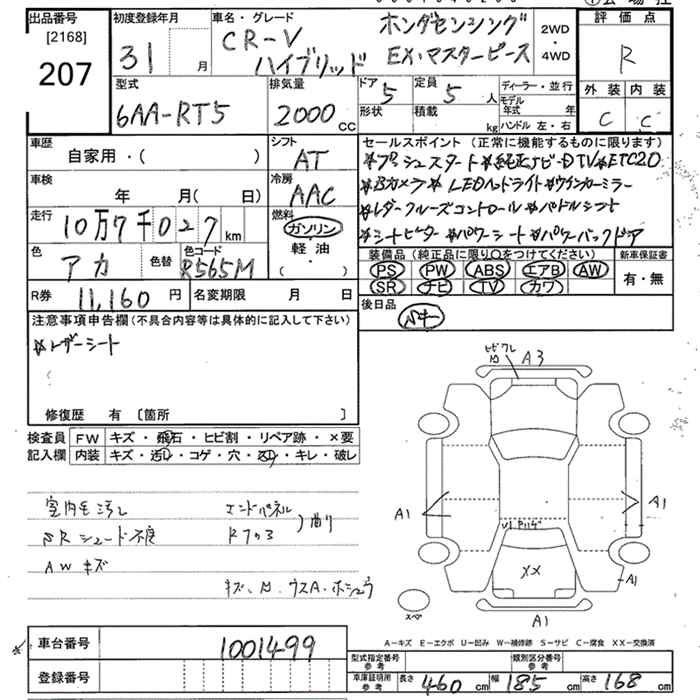 出品番号
[2168]
207
初度登録年月
31 月
車名・グレード
CR-V
ハイブリッド
ホンダセンシング
EX・マスターピース
2WD
・
4WD
評価点
R
外装 内装
C C
型式
6AA-RT5
排気量
2000 CC
ドア 5
定員 5 人
形状
積載 kg
ディーラー・並行
モデル年式 年
ハンドル 左・右
車歴
自家用・( )
シフト
AT
車検
年 月( 日)
冷房
AAC
走行
10万7千027 km
燃料
ガソリン
軽油
( ・ )
色
アカ
色替
色コード
R565M
R券 11,160 円
名変期限 月 日
セールスポイント (正常に機能するものに限ります)
※プッシュスタート※純正ナビ-DTV※ETC2.0
※Bカメラ※LEDヘッドライト※ウインカーミラー
※レダークルーズコントロール※パドルシフト
※シートヒーター※パワーシート※パワーバックドア
装備品(純正品に限り○をつけてください)
PS PW ABS エアB AW
SR ナビ TV カワ
新車保証書
有・無
後日品
注意事項申告欄(不具合内容等は具体的に記入して下さい)
※レザーシート
修復歴 有 〔箇所 〕
検査員
記入欄
FW キズ・飛石・ヒビ割・リペア跡・×要
内装 キズ・汚れ・コゲ・穴・凹・キレ・破レ
室内モ汚レ
SRシェード不良
AWキズ
エンドパネル
曲り
キズ、凹、ウスA、ホシュウ
ヒビワレ
凹
A3
A1
A1
XX
A1
A1
スペア
A-キズ E-エクボ U-凹み W-補修跡 S-サビ C-腐食 XX-交換済
車台番号 1001499
登録番号
型式指定番号
参考
類別区分番号
参考
車庫証明用
参考
長さ 460 cm 幅 185 cm 高さ 168 cm